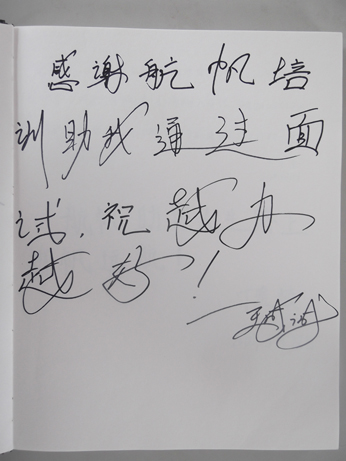 感谢航帆培
训助我通过面
试,祝越办
越好!